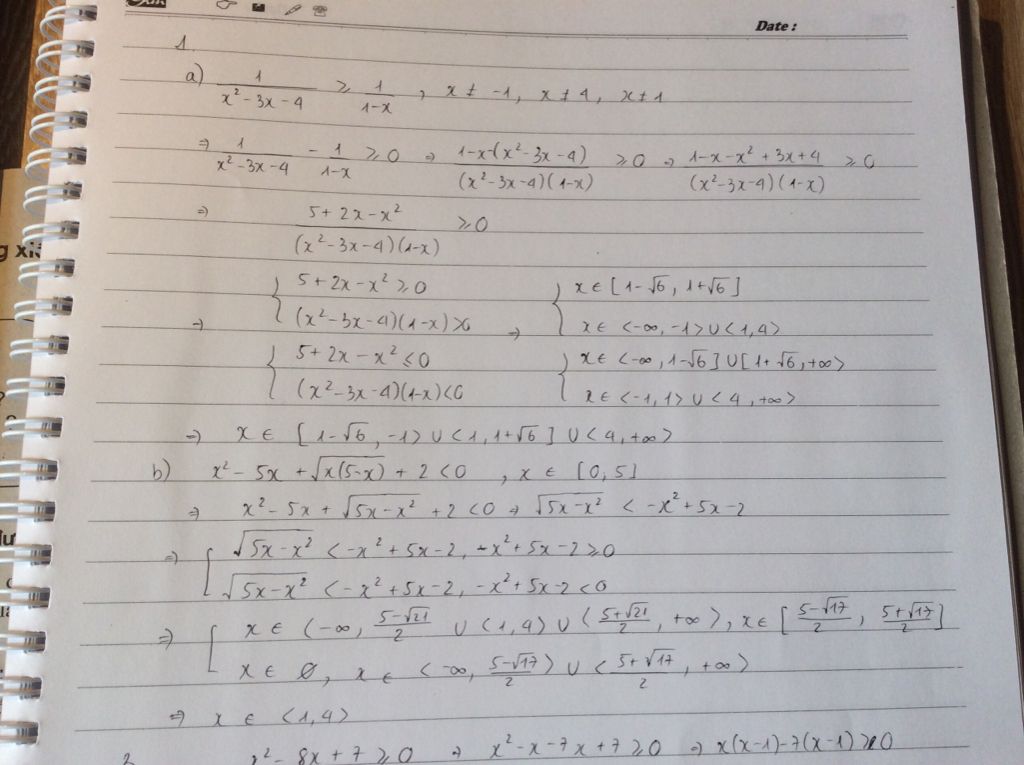 Date :
1.
a) 1/(x² - 3x - 4) ≥ 1/(1-x) , x ≠ -1, x ≠ 4, x ≠ 1
⇒ 1/(x² - 3x - 4) - 1/(1-x) ≥ 0 ⇒ (1-x-(x² - 3x - 4))/((x² - 3x - 4)(1-x)) ≥ 0 ⇒ (1-x-x² + 3x + 4)/((x² - 3x - 4)(1-x)) ≥ 0
⇒ (5 + 2x - x²)/((x² - 3x - 4)(1-x)) ≥ 0
{ 5 + 2x - x² ≥ 0 { x ∈ [1-√6, 1+√6]
⇒ (x² - 3x - 4)(1-x) > 0 ⇒ x ∈ <-∞, -1> ∪ <1, 4>
{ 5 + 2x - x² ≤ 0 { x ∈ <-∞, 1-√6] ∪ [1+√6, +∞>
(x² - 3x - 4)(1-x) < 0 x ∈ <-1, 1> ∪ <4, +∞>
⇒ x ∈ [1-√6, -1> ∪ <1, 1+√6] ∪ <4, +∞>
b) x² - 5x + √(x(5-x)) + 2 < 0 , x ∈ [0, 5]
⇒ x² - 5x + √(5x-x²) + 2 < 0 ⇒ √(5x-x²) < -x² + 5x - 2
⇒ [ √(5x-x²) < -x² + 5x - 2, -x² + 5x - 2 ≥ 0
√(5x-x²) < -x² + 5x - 2, -x² + 5x - 2 < 0
⇒ [ x ∈ <-∞, (5-√21)/2 ∪ <1, 4> ∪ <(5+√21)/2, +∞>, x ∈ [(5-√17)/2, (5+√17)/2]
x ∈ ∅, x ∈ <-∞, (5-√17)/2> ∪ <(5+√17)/2, +∞>
⇒ x ∈ <1, 4>
2. x² - 8x + 7 ≥ 0 ⇒ x² - x - 7x + 7 ≥ 0 ⇒ x(x-1)-7(x-1) ≥ 0